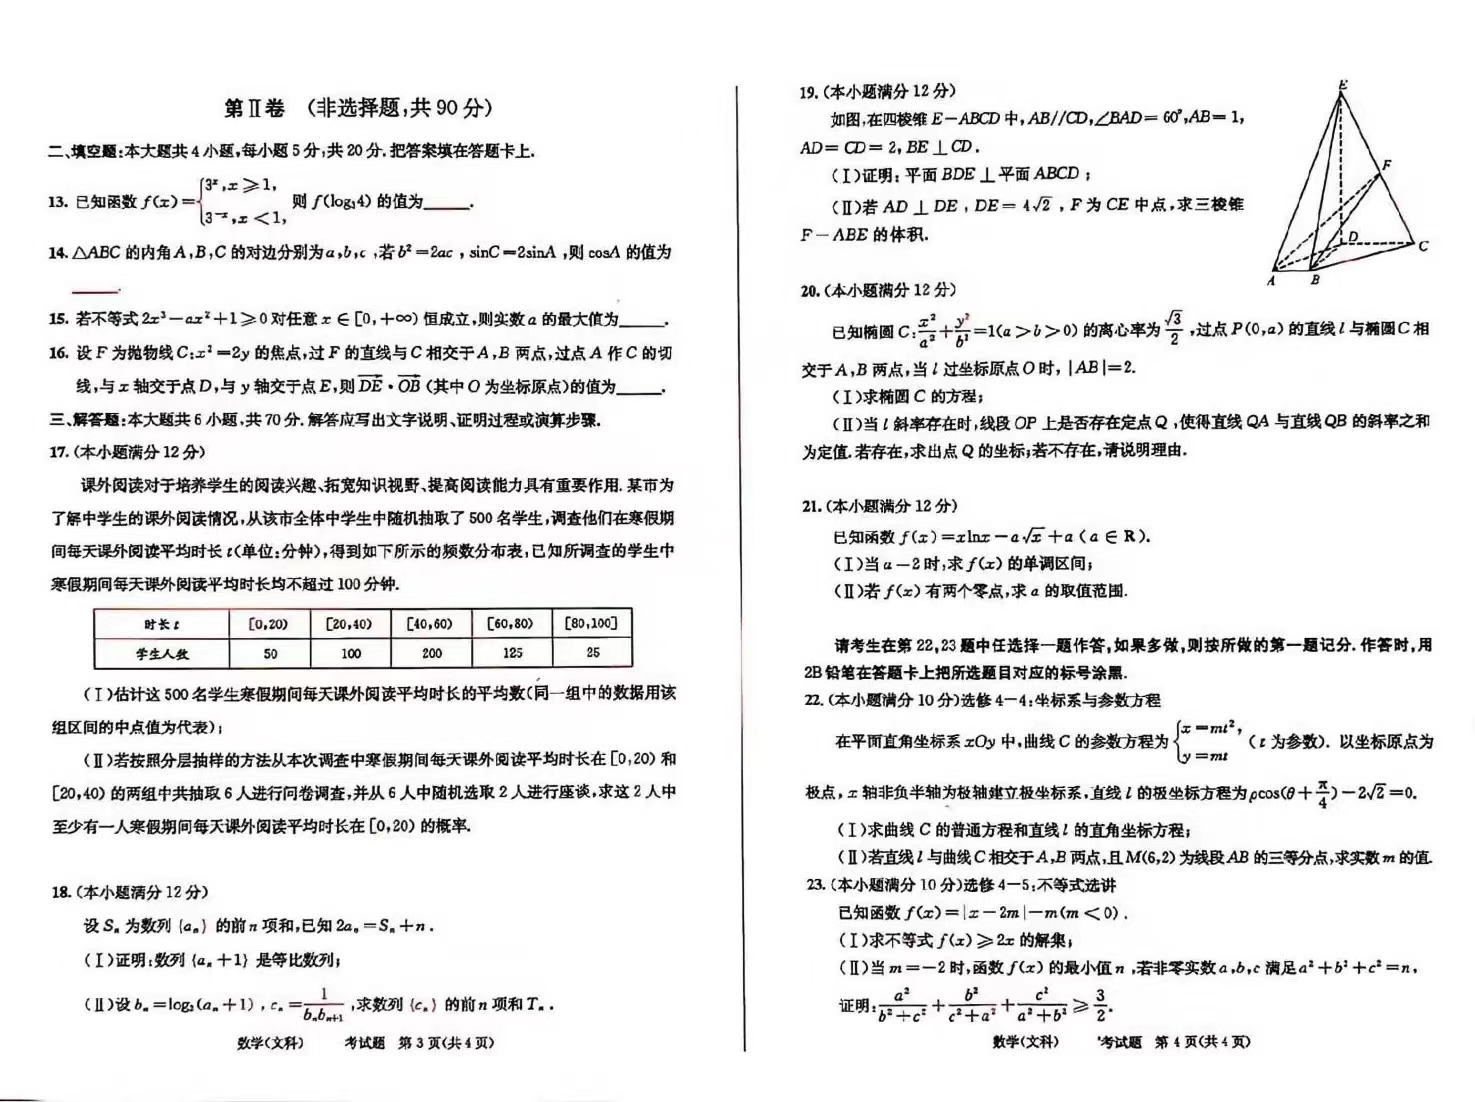 第Ⅱ卷 (非选择题,共90分)
二、填空题:本大题共4小题,每小题5分,共20分.把答案填在答题卡上.
13. 已知函数 f(x)={3^x, x≥1, 3^{-x}, x<1, 则 f(log₃4) 的值为____.
14. △ABC 的内角 A,B,C 的对边分别为 a,b,c ,若 b²=2ac , sinC=2sinA ,则 cosA 的值为
____.
15. 若不等式 2x³-ax²+1≥0 对任意 x∈[0,+∞) 恒成立,则实数 a 的最大值为____.
16. 设 F 为抛物线 C:x²=2y 的焦点,过 F 的直线与 C 相交于 A,B 两点,过点 A 作 C 的切
线,与 x 轴交于点 D,与 y 轴交于点 E,则 \overrightarrow{DE}·\overrightarrow{OB} (其中 O 为坐标原点)的值为____.
三、解答题:本大题共6小题,共70分.解答应写出文字说明、证明过程或演算步骤.
17.(本小题满分12分)
课外阅读对于培养学生的阅读兴趣、拓宽知识视野、提高阅读能力具有重要作用.某市为
了解中学生的课外阅读情况,从该市全体中学生中随机抽取了500名学生,调查他们在寒假期
间每天课外阅读平均时长 t(单位:分钟),得到如下所示的频数分布表,已知所调查的学生中
寒假期间每天课外阅读平均时长均不超过100分钟.
时长 t [0,20) [20,40) [40,60) [60,80) [80,100]
学生人数 50 100 200 125 25
(Ⅰ)估计这500名学生寒假期间每天课外阅读平均时长的平均数(同一组中的数据用该
组区间的中点值为代表);
(Ⅱ)若按照分层抽样的方法从本次调查中寒假期间每天课外阅读平均时长在[0,20)和
[20,40)的两组中共抽取6人进行问卷调查,并从6人中随机选取2人进行座谈,求这2人中
至少有一人寒假期间每天课外阅读平均时长在[0,20)的概率.
18.(本小题满分12分)
设 Sₙ 为数列 {aₙ} 的前 n 项和,已知 2aₙ=Sₙ+n .
(Ⅰ)证明:数列 {aₙ+1} 是等比数列;
(Ⅱ)设 bₙ=log₂(aₙ+1) , cₙ=1/(bₙbₙ₊₁) ,求数列 {cₙ} 的前 n 项和 Tₙ .
数学(文科) 考试题 第3页(共4页)
19.(本小题满分12分)
如图,在四棱锥 E-ABCD 中,AB//CD,∠BAD=60°,AB=1,
AD=CD=2,BE⊥CD.
(Ⅰ)证明:平面 BDE⊥平面 ABCD ;
(Ⅱ)若 AD⊥DE , DE=4√2 , F 为 CE 中点,求三棱锥
F-ABE 的体积.
E
F
D
C
A B
20.(本小题满分12分)
已知椭圆 C:x²/a²+y²/b²=1(a>b>0) 的离心率为 √3/2 ,过点 P(0,a) 的直线 l 与椭圆 C 相
交于 A,B 两点,当 l 过坐标原点 O 时, |AB|=2.
(Ⅰ)求椭圆 C 的方程;
(Ⅱ)当 l 斜率存在时,线段 OP 上是否存在定点 Q ,使得直线 QA 与直线 QB 的斜率之和
为定值.若存在,求出点 Q 的坐标;若不存在,请说明理由.
21.(本小题满分12分)
已知函数 f(x)=xlnx-a√x+a ( a∈R).
(Ⅰ)当 a=2 时,求 f(x) 的单调区间;
(Ⅱ)若 f(x) 有两个零点,求 a 的取值范围.
请考生在第22,23题中任选择一题作答,如果多做,则按所做的第一题记分.作答时,用
2B铅笔在答题卡上把所选题目对应的标号涂黑.
22.(本小题满分10分)选修4-4:坐标系与参数方程
在平面直角坐标系 xOy 中,曲线 C 的参数方程为 {x=mt², y=mt (t 为参数). 以坐标原点为
极点, x 轴非负半轴为极轴建立极坐标系,直线 l 的极坐标方程为 ρcos(θ+π/4)-2√2=0.
(Ⅰ)求曲线 C 的普通方程和直线 l 的直角坐标方程;
(Ⅱ)若直线 l 与曲线 C 相交于 A,B 两点,且 M(6,2) 为线段 AB 的三等分点,求实数 m 的值.
23.(本小题满分10分)选修4-5:不等式选讲
已知函数 f(x)=|x-2m|-m(m<0) .
(Ⅰ)求不等式 f(x)≥2x 的解集;
(Ⅱ)当 m=-2 时,函数 f(x) 的最小值 n ,若非零实数 a,b,c 满足 a²+b²+c²=n,
证明:a²/(b²+c²)+b²/(c²+a²)+c²/(a²+b²)≥3/2.
数学(文科) 考试题 第4页(共4页)